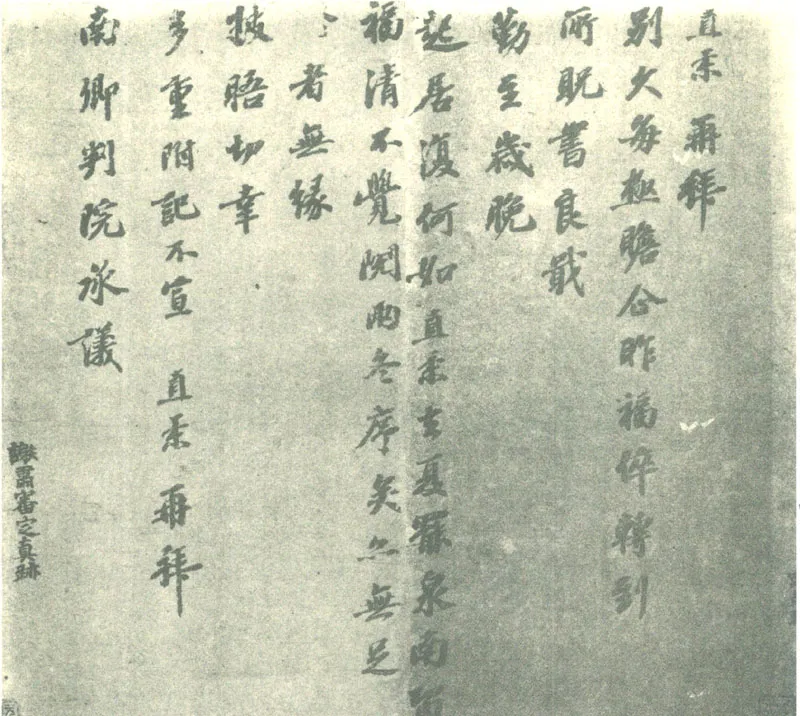 直柔再拜
別久每極瞻企昨福倅轉到
所貺書良戢
勤至歲晚
起居復何如直柔去夏罷泉南寓
福清不覺閱兩冬序矣亦無足
言者無緣
披晤切幸
多重附記不宣 直柔 再拜
南卿判院承議
謝肅審定真跡